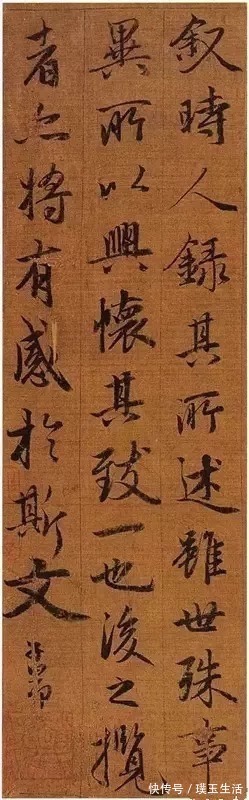 叙時人録其所述雖世殊事
異所以興懷其致一也後之攬
者亦將有感於斯文
快传号/璞玉生活